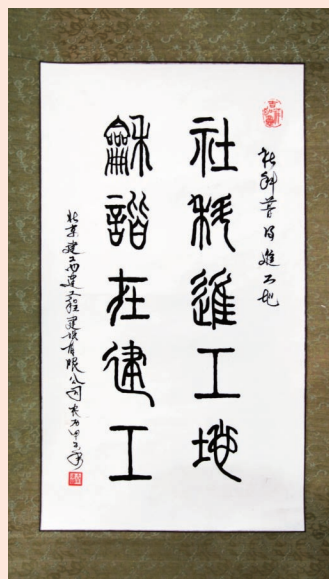 社科普及进工地
社科進工地
龢諧在建工
北京建工四建工程建设有限公司